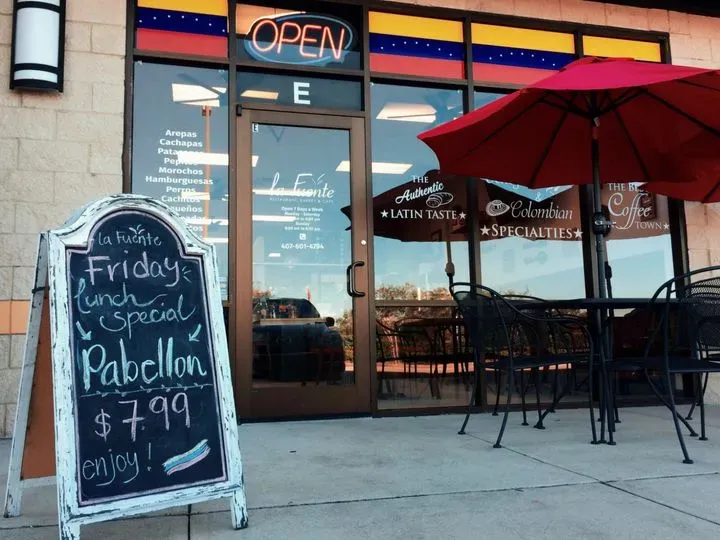 OPEN
E
E
Arepas
Cachapas
Pepitos
Morochos
Hamburguesas
Perros
Cachitos
la Fuente
Open 7 Days a Week
407-601-4294
THE
Authentic
LATIN TASTE
Colombian
SPECIALTIES
THE BEST
Coffee
TOWN
la Fuente
Friday
lunch
special
Pabellon
$7.99
enjoy!